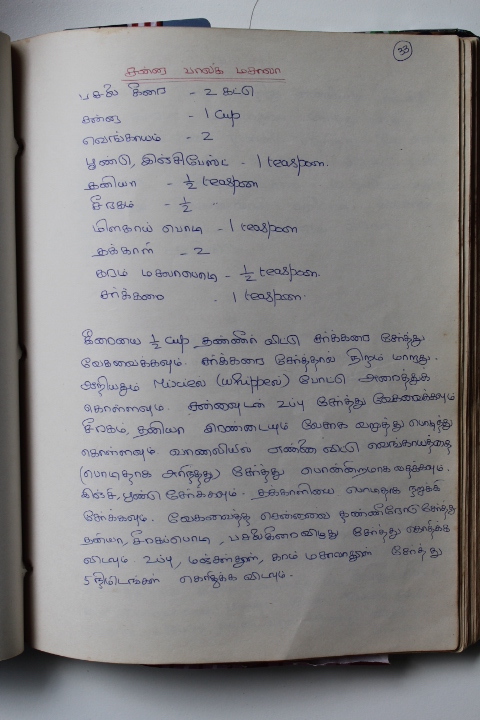 33
சன்னா பாலக் மசாலா
பசலை கீரை - 2 கட்டு
சன்னா - 1 Cup
வெங்காயம் - 2
பூண்டு, இஞ்சிபேஸ்ட் - 1 teaspon.
தனியா - ½ teaspon
சீரகம் - ½ "
மிளகாய் பொடி - 1 teaspon
தக்காளி - 2
கரம் மசாலாபொடி - ½ teaspon.
சர்க்கரை - 1 teaspon.
கீரையை ½ cup தண்ணீர் விட்டு சர்க்கரை சேர்த்து
வேகவைக்கவும். சர்க்கரை சேர்த்தால் நிறம் மாறாது.
ஆறியதும் Mixiele (Whippel) போட்டு அரைத்துக்
கொள்ளவும். சன்னாவுடன் உப்பு சேர்த்து வேகவைக்கவும்
சீரகம், தனியா இரண்டையும் லேசாக வறுத்து பொடித்து
கொள்ளவும் வாணலியில் எண்ணெய் விட்டு வெங்காயத்தை
(பொடிதாக அரிந்தது) சேர்த்து பொன்நிறமாக வதக்கவும்.
இஞ்சி, பூண்டு சேர்க்கவும். தக்காளியை பொடிதாக நறுக்கி
சேர்க்கவும். வேகவைத்த சென்னாவை தண்ணீரோடு சேர்த்து
தனியா, சீரகப்பொடி, பசலைகீரைவிழுது சேர்த்து கொதிக்க
விடவும். உப்பு, மஞ்சள்தூள், கரம் மசாலாதூள் சேர்த்து
5 நிமிடங்கள் கொதிக்க விடவும்.